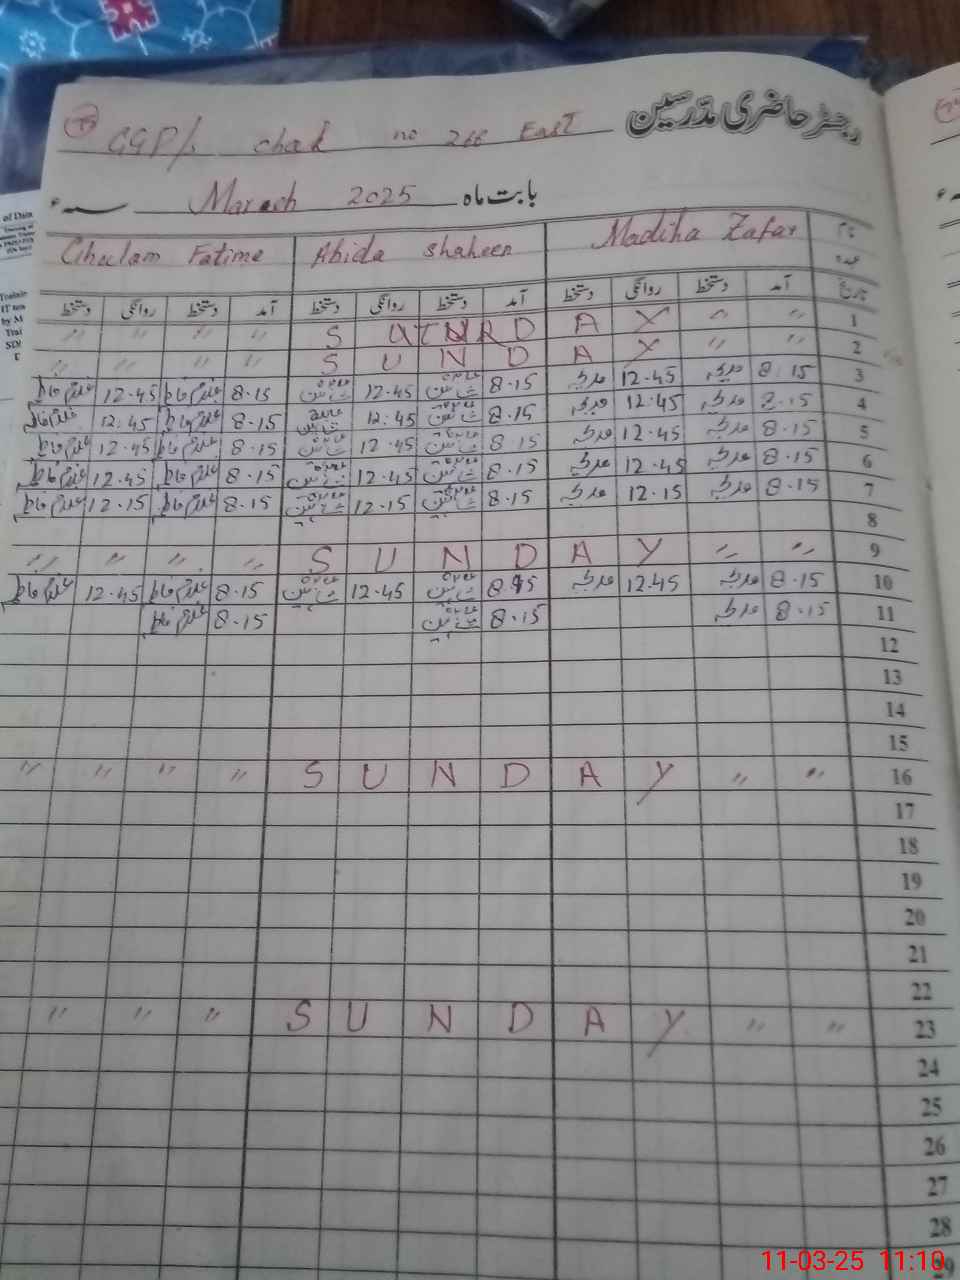 رجسٹر حاضری مدرسین
GGP/s chak no 266 East
بابت ماہ March 2025 سنہ ء
نام Madiha Zafar Abida Shaheen Ghulam Fatima
عہدہ
تاریخ آمد دستخط روانگی دستخط آمد دستخط روانگی دستخط آمد دستخط روانگی دستخط
1 " " S U N D A Y " " " "
2 " " S U N D A Y " " " "
3 8.15 مدیحہ 12.45 مدیحہ 8.15 12.45 8.15 غلام فاطمہ 12.45 غلام فاطمہ
4 8.15 مدیحہ 12.45 مدیحہ 8.15 12.45 8.15 غلام فاطمہ 12.45 غلام فاطمہ
5 8.15 مدیحہ 12.45 مدیحہ 8.15 12.45 8.15 غلام فاطمہ 12.45 غلام فاطمہ
6 8.15 مدیحہ 12.45 مدیحہ 8.15 12.45 8.15 غلام فاطمہ 12.45 غلام فاطمہ
7 8.15 مدیحہ 12.15 مدیحہ 8.15 12.15 8.15 غلام فاطمہ 12.15 غلام فاطمہ
8
9 " " S U N D A Y " " " "
10 8.15 مدیحہ 12.45 مدیحہ 8.15 12.45 8.15 غلام فاطمہ 12.45 غلام فاطمہ
11 8.15 مدیحہ 8.15 8.15 غلام فاطمہ
12
13
14
15
16 " " S U N D A Y " " " "
17
18
19
20
21
22
23 " " S U N D A Y " " "
24
25
26
27
28
29
11-03-25 11:10